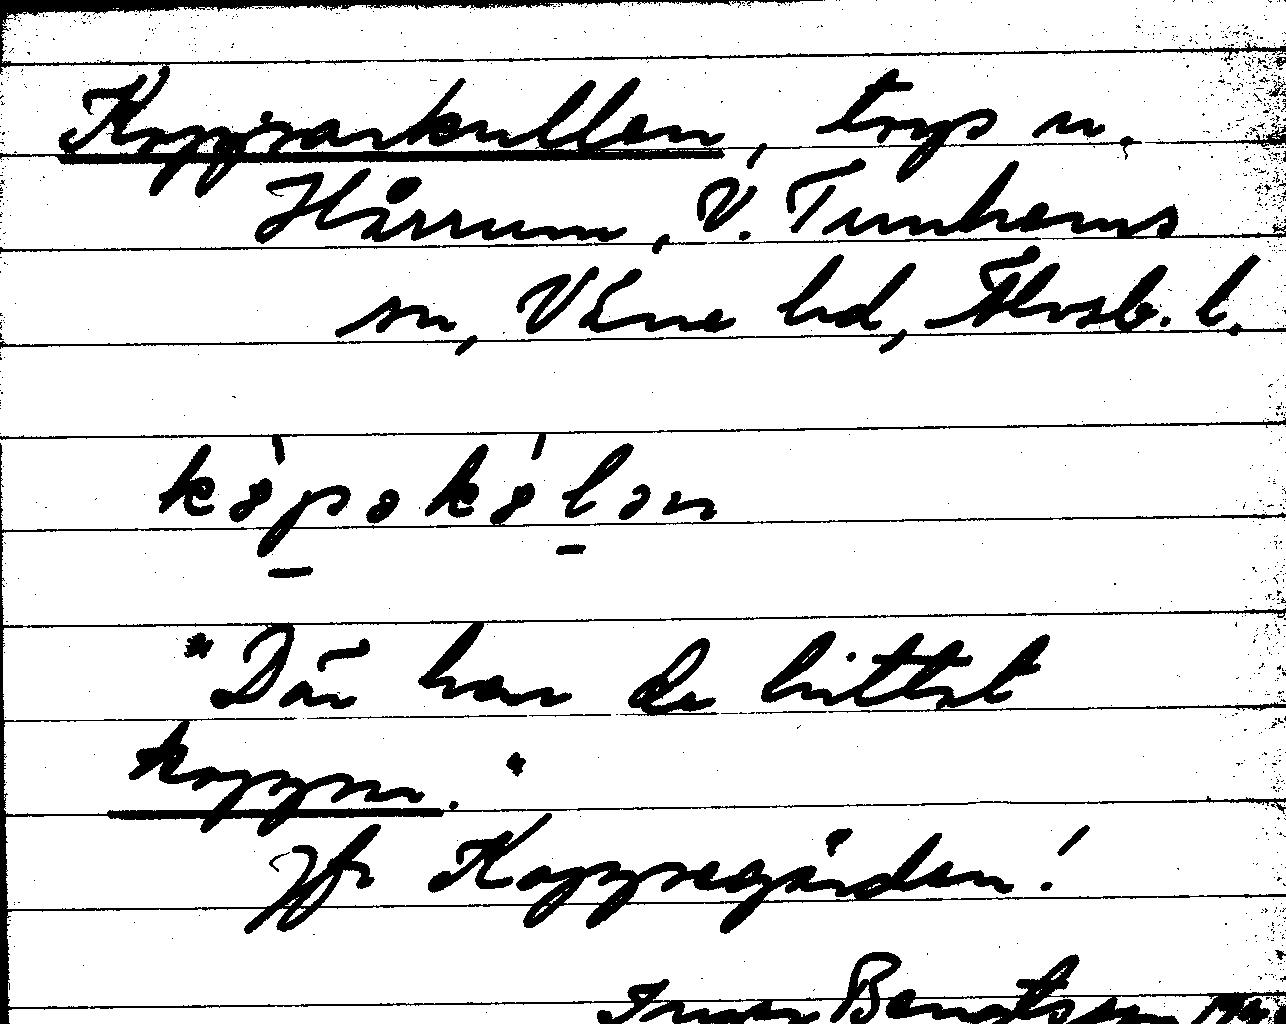 Kopparkullen, torp u.
Hårrum, V. Tunhems
sn, Väne hd, Älvsb. l.
kòpakúlan
"Där har de hittat
koppar."
Jfr Kopparegården!
Ingar Bengtsson